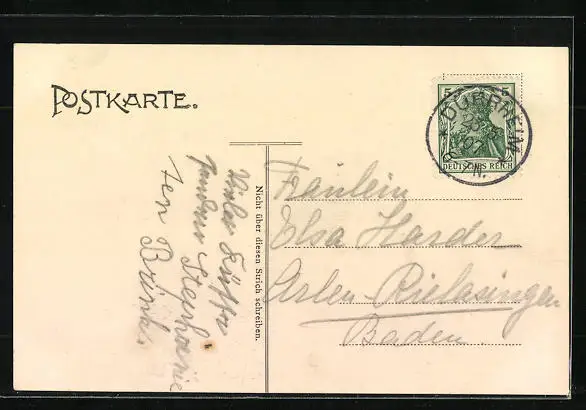 POSTKARTE.
5 5
DÜRRHEIM
DEUTSCHES REICH
Nicht über diesen Strich schreiben.
Viele Grüße
Ten Brink.
Fräulein
Elsa Harder
Arlen-Rielasingen
Baden.